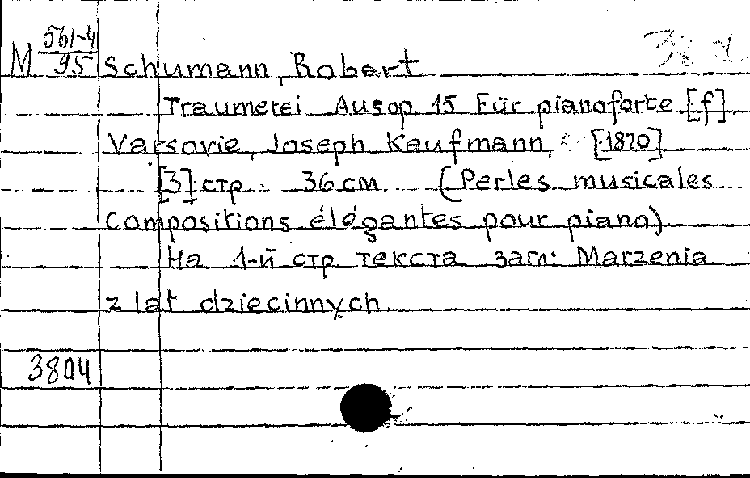 M 561-4/95 Schumann, Robert
Traumerei Aus op. 15 Für pianoforte [f]
Varsovie, Joseph Kaufmann, [1870]
[3] стр. 36 см. (Perles musicales
Compositions élégantes pour piano)
На 1-й стр. текста загл: Marzenia
z lat dziecinnych
3804